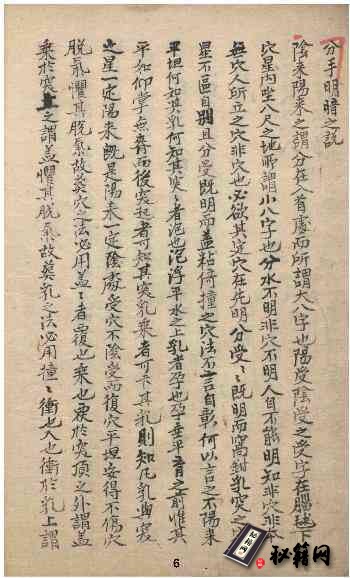 分手明暗之說
陰來陽來之謂分在入首處而所謂大八字也陽受陰受之受字在腦毬下
穴星內坐八尺之地所謂小八字也分水不明非穴不明人自不能明知非穴非
無穴人所立之穴非穴也必欲其定穴在先明分受〻〻既明而窩鉗乳突之
星不區自別且分曼既明而蓋粘倚撞之穴法不言自彰何以言之不陽來
平坦何知其乳何知其突〻者泡也泡浮平水之上乳者孕也孕垂平育之前惟其
平如仰掌無脊而後突起者可知其突乳乘者可卞其乳則知凡乳與突
之星一定陽來既是陽來一定陰處受穴不陰受而復穴平坦安得不傷穴
脫氣懼其脫氣故葬穴之法必用蓋〻者覆也乘也衮於突頂之外謂蓋
乘於突上之謂蓋懼其脫氣故葬乳之法必用撞〻衝也入也衝於乳上謂
6
秘籍网